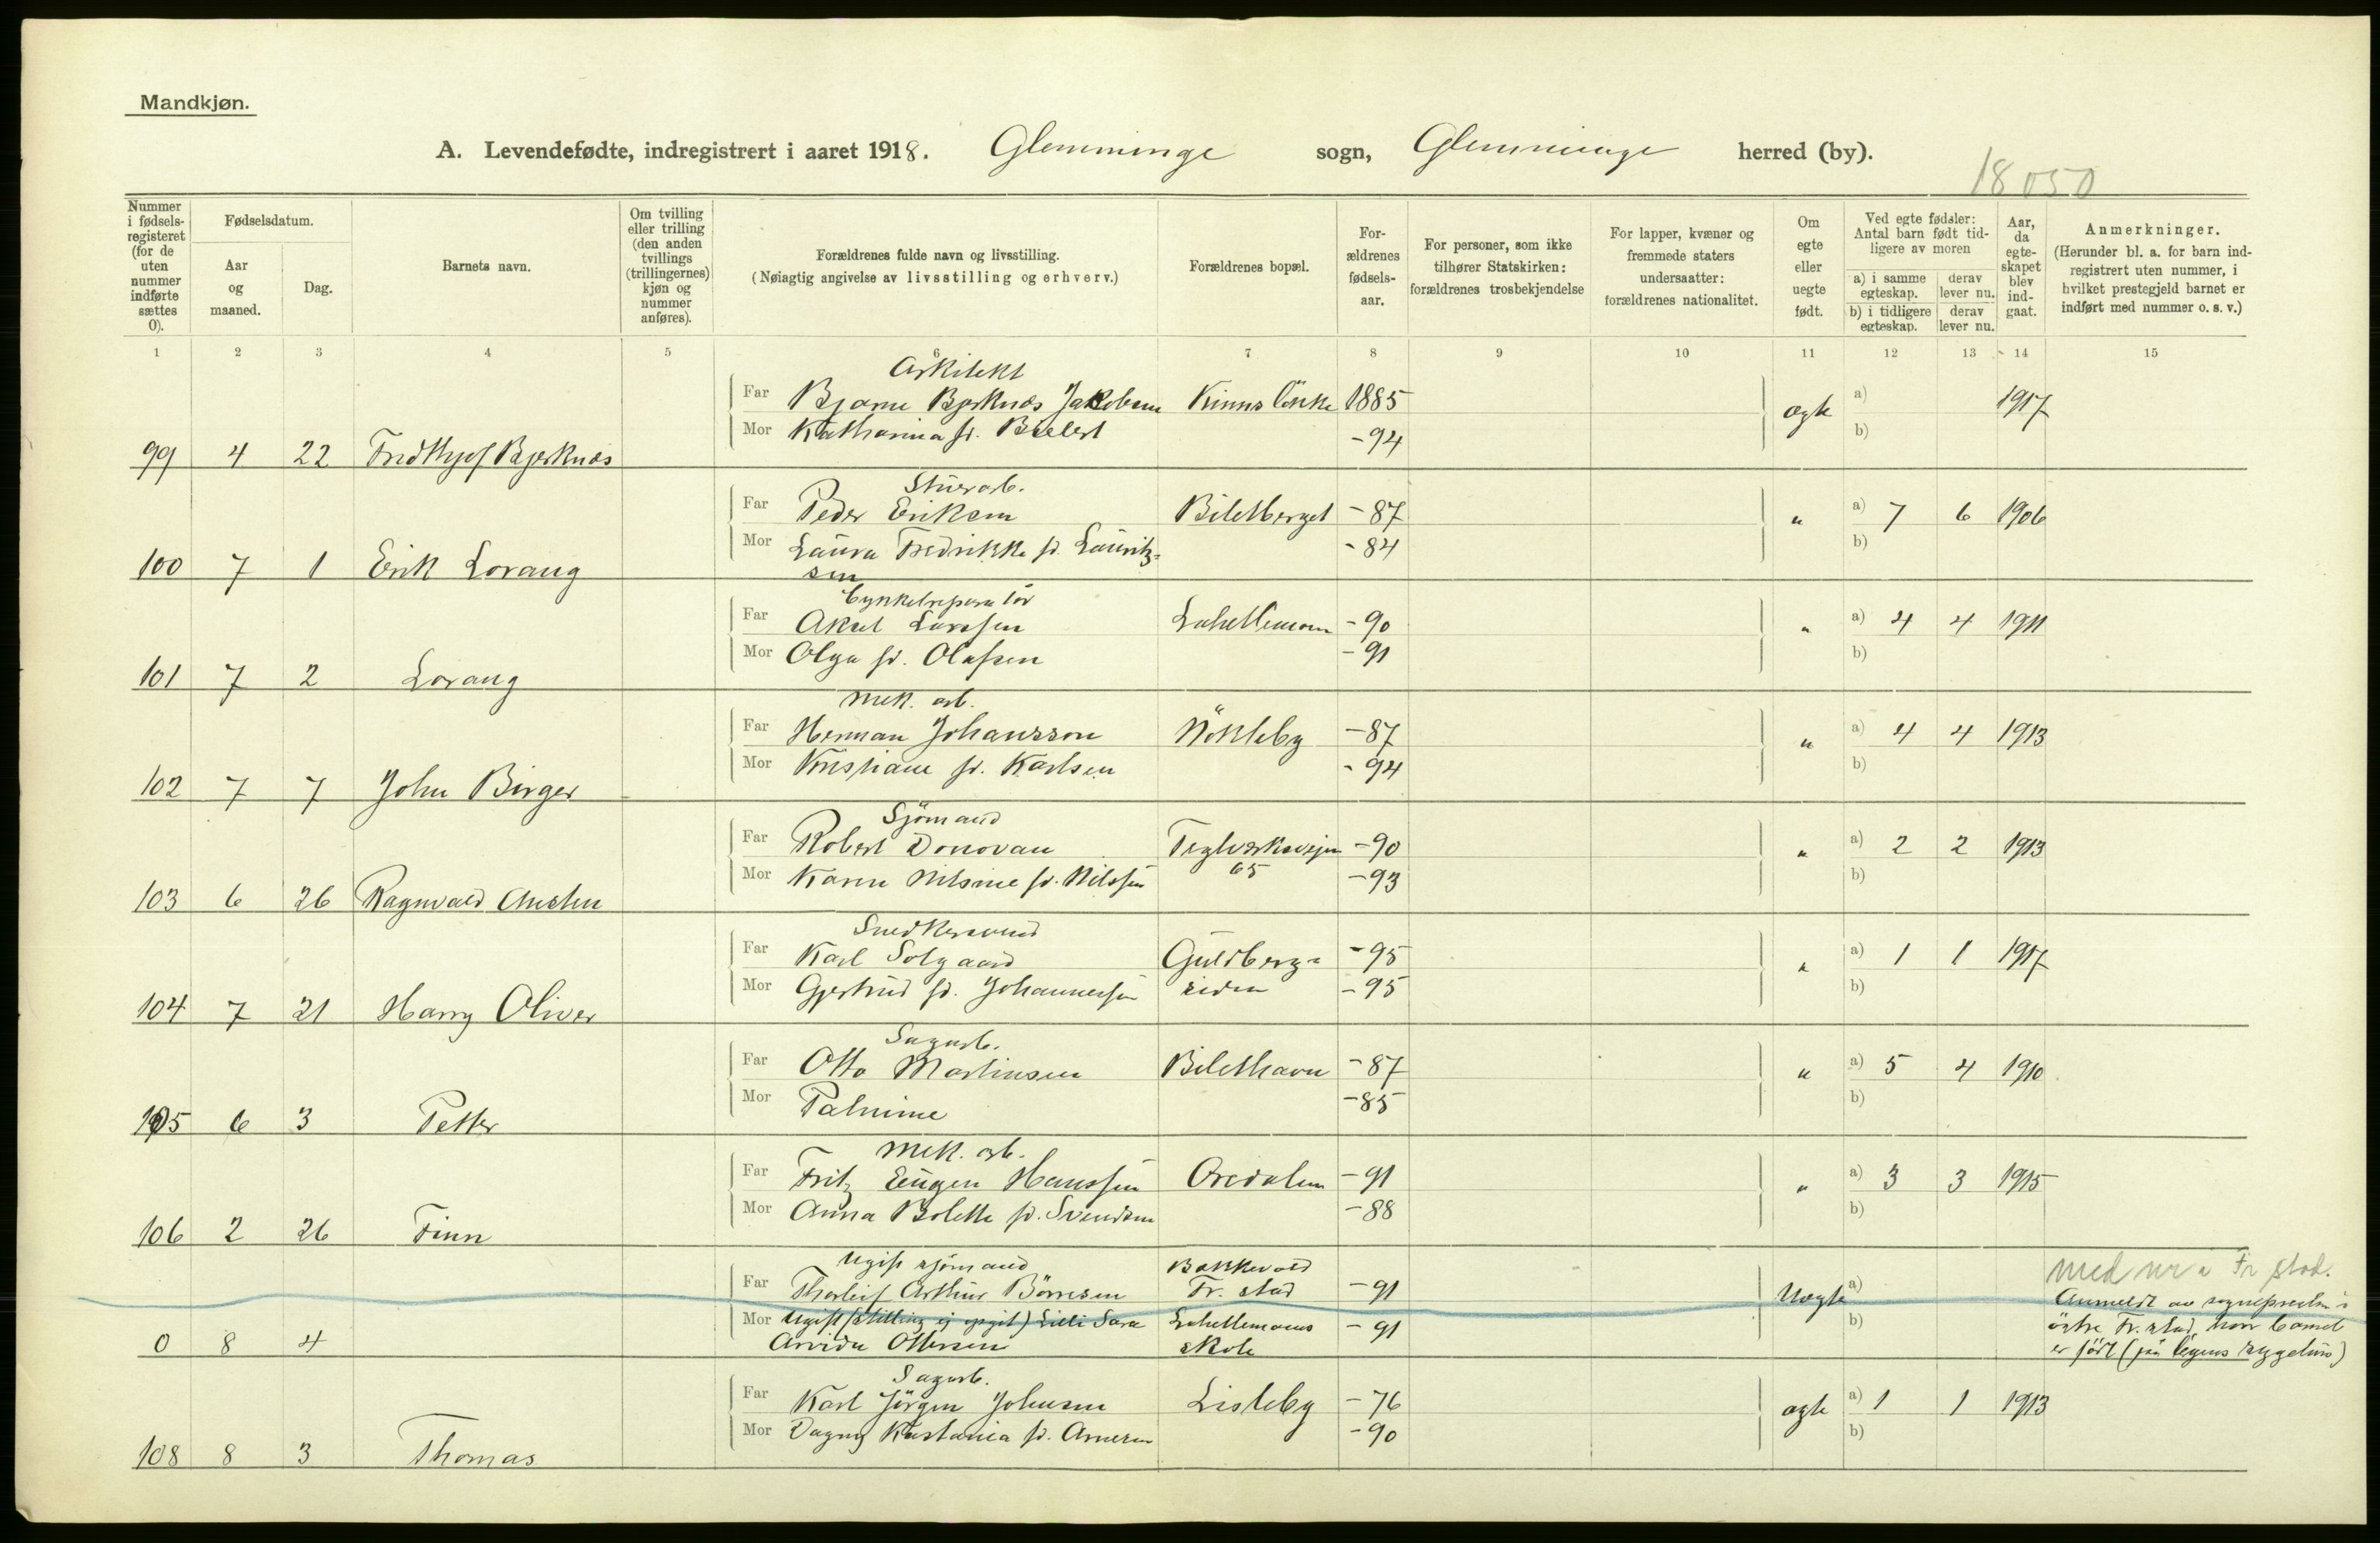 Mandkjøn.
A. Levendefødte, indregistrert i aaret 1918. Glemminge sogn, Glemminge herred (by).
18050
Nummer i fødsels-registeret (for de uten nummer indførte sættes 0).
Fødselsdatum.
Aar og maaned.
Dag.
Barnets navn.
Om tvilling eller trilling (den anden tvillings (trillingernes) kjøn og nummer anføres).
Forældrenes fulde navn og livsstilling.
(Nøiagtig angivelse av livsstilling og erhverv.)
Forældrenes bopæl.
For-ældrenes fødsels-aar.
For personer, som ikke tilhører Statskirken: forældrenes trosbekjendelse
For lapper, kvæner og fremmede staters undersaatter: forældrenes nationalitet.
Om egte eller uegte født.
Ved egte fødsler: Antal barn født tid-ligere av moren
a) i samme egteskap. derav lever nu.
b) i tidligere egteskap. derav lever nu.
Aar, da egte-skapet blev ind-gaat.
Anmerkninger.
(Herunder bl. a. for barn ind-registrert uten nummer, i hvilket prestegjeld barnet er indført med nummer o. s. v.)
1 2 3 4 5 6 7 8 9 10 11 12 13 14 15
Arkitekt
Far Bjarne Bjerknæs Jakobsen 1885 ægte a) 1917
Mor Katharina f. -94 b)
99 4 22 Fridthjof Bjerknæs
Stuerarb.
Far Peder Eriksen Biletberget -87 " a) 7 6 1906
Mor Laura Fredrikke f. Lauritz- -84 b)
sen
100 7 1 Erik Lorang
Cykkelreparatör
Far Aksel Larssen Lahellemoen -90 " a) 4 4 1911
Mor Olga f. Olafsen -91 b)
101 7 2 Lorang
Mek. arb.
Far Herman Johansson Nökleby -87 " a) 4 4 1913
Mor Kristiane f. Karlsen -94 b)
102 7 7 John Birger
Sjömand
Far Robert Donovan Teglverksvejen -90 " a) 2 2 1913
Mor Karen Nilsine f. Nilssen 65 -93 b)
103 6 26 Ragnvald Austin
Snedkersvend
Far Karl Solgaard Guldberg- -95 " a) 1 1 1917
Mor Gjertrud f. Johannessen siden -95 b)
104 7 21 Harry Oliver
Sagarb.
Far Otto Martinsen Bilethavn -87 " a) 5 4 1910
Mor Palmine -85 b)
105 6 3 Petter
Mek. arb.
Far Fritz Eugen Hanssen Oredalen -91 " a) 3 3 1915
Mor Anna Bolette f. Svendsen -88 b)
106 2 26 Finn
Ugift sjömand Bakkevold med nr i Fr stad.
Far Thorleif Arthur Börresen Fr. stad -91 Uægte a) Anmeldt av sognepresten i
Mor Ugift (stilling ej opgit) Lilli Sara Lahellemoens -91 b) östre Fr. stad, hvor barnet
Arvida Ottersen skole er födt (på byens sygehus)
0 8 4
Sagarb.
Far Karl Jörgen Johansen Lisleby -76 ægte a) 1 1 1913
Mor Dagny f. Arnesen -90 b)
108 8 3 Thomas